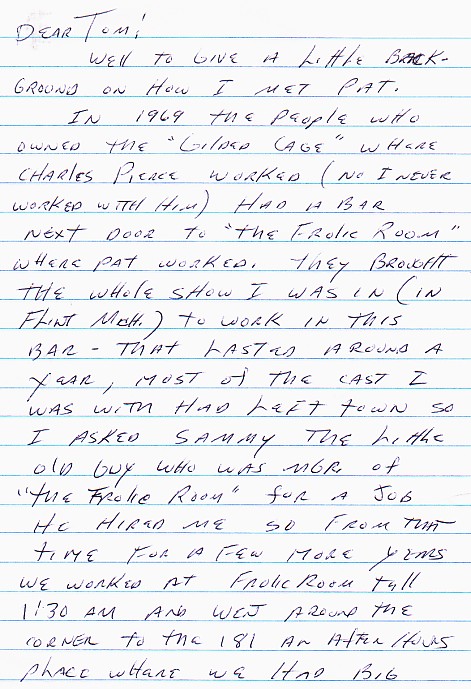 DEAR TOM!
WELL TO GIVE A LITTLE BACK-
GROUND ON HOW I MET PAT.
IN 1969 THE PEOPLE WHO
OWNED THE "GILDED CAGE" WHERE
CHARLES PIERCE WORKED (NO I NEVER
WORKED WITH HIM) HAD A BAR
NEXT DOOR TO "THE FROLIC ROOM"
WHERE PAT WORKED. THEY BROUGHT
THE WHOLE SHOW I WAS IN (IN
FLINT MICH.) TO WORK IN THIS
BAR - THAT LASTED AROUND A
YEAR, MOST OF THE CAST I
WAS WITH HAD LEFT TOWN SO
I ASKED SAMMY THE LITTLE
OLD GUY WHO WAS MGR. OF
"THE FROLIC ROOM" FOR A JOB
HE HIRED ME SO FROM THAT
TIME FOR A FEW MORE YEARS
WE WORKED AT FROLIC ROOM TILL
1:30 AM AND WENT AROUND THE
CORNER TO THE 181 AN AFTER HOURS
PLACE WHERE WE HAD BIG